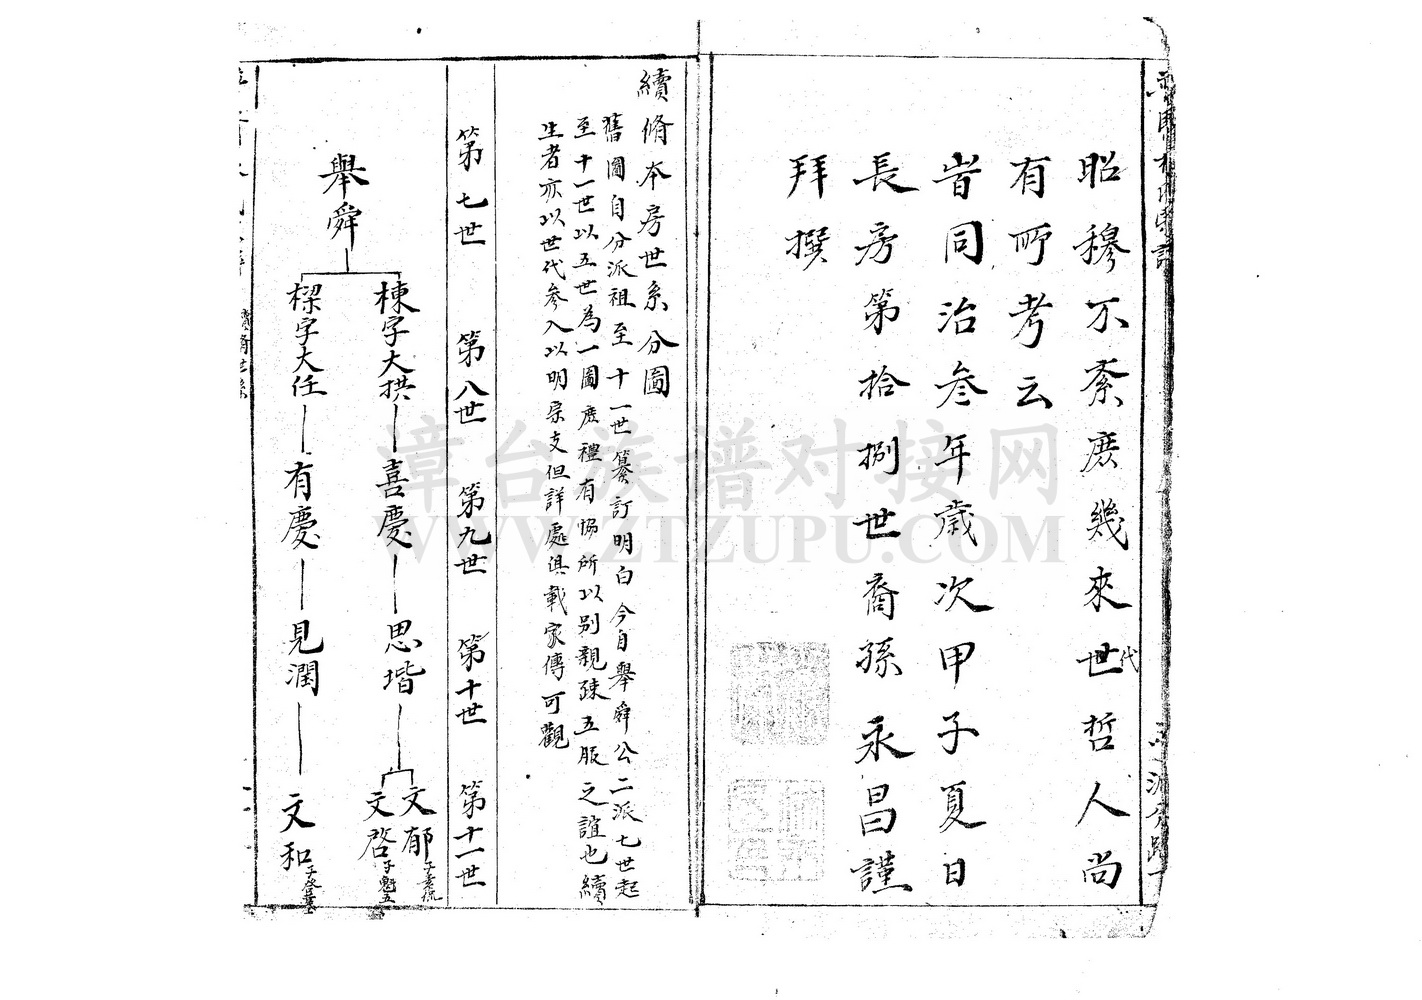 昭穆不紊庶幾來世代哲人尚
有所考云
旹同治叁年歲次甲子夏日
長房第拾捌世裔孫永昌謹
拜撰
續脩本房世系分圖
舊圖自分派祖至十一世纂訂明白今自舉舜公二派七世起
至十一世以五世為一圖庶禮有恊所以别親疎五服之誼也續
生者亦以世代參入以明宗支但詳處俱載家傳可觀
第七世
第八世
第九世
第十世
第十一世
舉舜
棟字大拱
喜慶
思堦
文郁
文啓子魁五
樑字大任
有慶
見潤
文和
續脩世系
漳台族谱对接网
WWW.ZTZUPU.COM